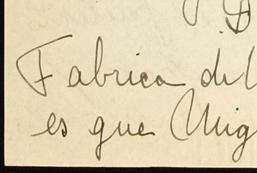 Fabrica del
es que Mig